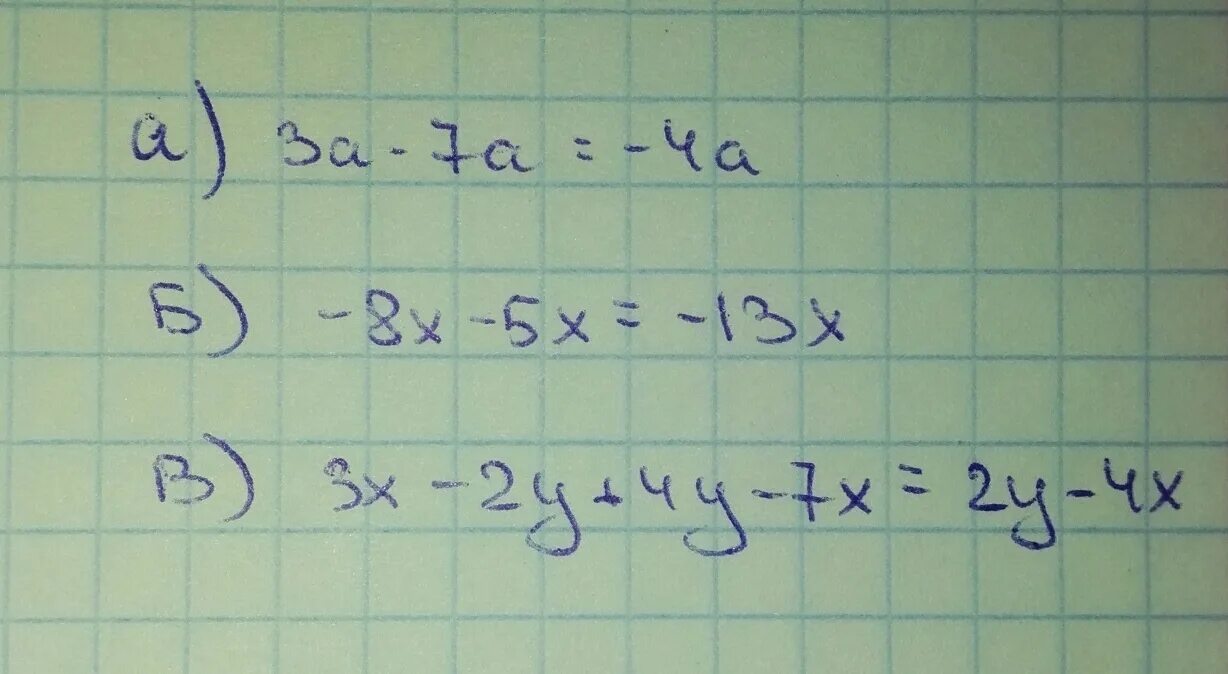 а) 3a - 7a = -4a
Б) -8x - 5x = -13x
В) 3x - 2y + 4y - 7x = 2y - 4x